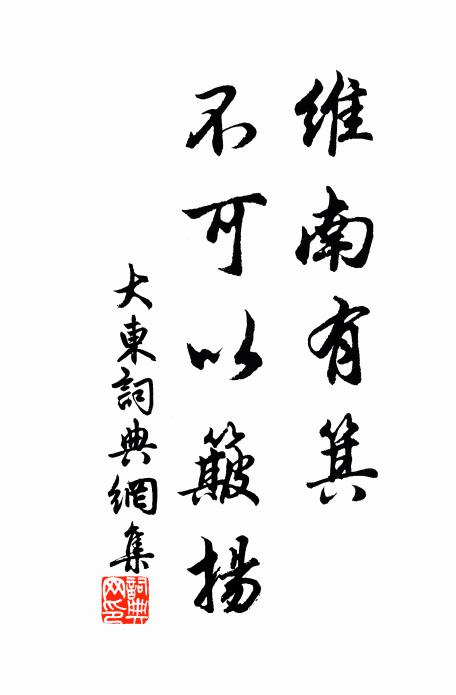 維南有箕
不可以簸揚
大東詞典網集
詞典网印